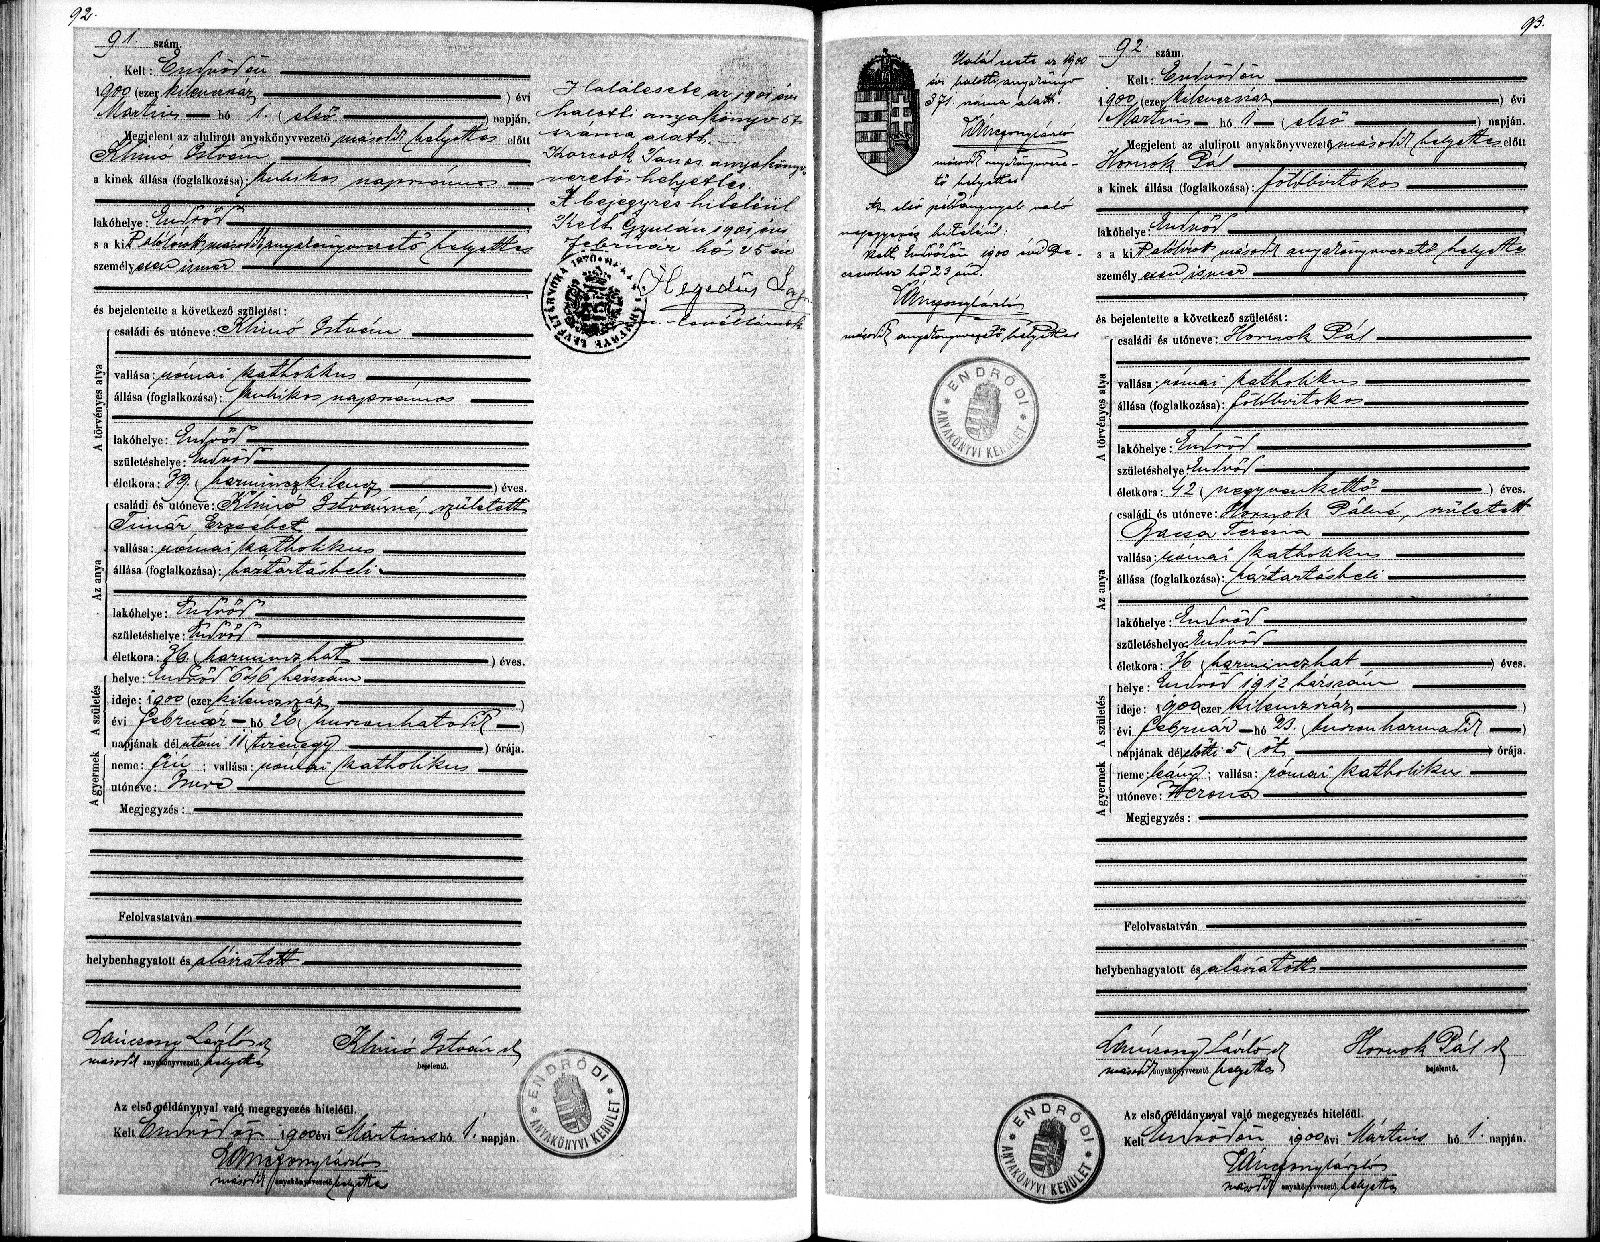 92.
91. szám.
Kelt: Endrődön
1900 (ezer kilenczszáz) évi
Martius hó 1. (első) napján.
Megjelent az alulirott anyakönyvvezető másodk helyettes előtt
Klimó István,
a kinek állása (foglalkozása): kubikos napszámos
lakóhelye: Endrőd
s a kit másodk anyakönyvvezető helyettes
személyesen ismer
és bejelentette a következő születést:
A törvényes atya
családi és utóneve: Klimó István
vallása: római katholikus
állása (foglalkozása): kubikos napszámos
lakóhelye: Endrőd
születéshelye: Endrőd
életkora: 39. (harminczkilencz) éves.
Az anya
családi és utóneve: Klimó Istvánné, született
Timár Erzsébet
vallása: római katholikus
állása (foglalkozása): háztartásbeli
lakóhelye: Endrőd
születéshelye: Endrőd
életkora: 36. (harminczhat) éves.
A születés
helye: Endrőd 646 házszám
ideje: 1900 (ezer kilenczszáz)
évi február hó 26 (huszonhatodik)
napjának délutáni 11 (tizenegy) órája.
A gyermek
neme: fiu; vallása: római katholikus
utóneve: Imre
Megjegyzés:
Felolvastatván
helybenhagyatott és aláiratott
Láncsony László
másodk anyakönyvvezető helyettes
Klimó István
bejelentő.
Az első példánynyal való megegyezés hiteléül.
Kelt Endrődön 1900 évi Mártius hó 1. napján.
Láncsony László
másodk anyakönyvvezető helyettes
ENDRŐDI ANYAKÖNYVI KERÜLET
Halálesete az 1901 évi
halotti anyakönyv 57
száma alatt.
Korcsok János anyakönyv
vezető helyettes
A bejegyzés hiteléül
Kelt Gyulán 1901 évi
február hó 25 én
Hegedűs
93.
Haláleset az 1900
évi halotti anyakönyv
371 száma alatt.
Láncsony László
másodk anyakönyvveze-
tő helyettes
Az első példánynyal való
megegyezés hiteléül.
Kelt Endrődön 1900 évi De-
cember hó 23 án.
Láncsony László
másodk anyakönyvvezető helyettes
ENDRŐDI ANYAKÖNYVI KERÜLET
92. szám.
Kelt: Endrődön
1900 (ezer kilenczszáz) évi
Martius hó 1 (első) napján.
Megjelent az alulirott anyakönyvvezető másodk helyettes előtt
Hornok Pál
a kinek állása (foglalkozása): földbirtokos
lakóhelye: Endrőd
s a kit másodk anyakönyvvezető helyettes
személyesen ismer
és bejelentette a következő születést:
A törvényes atya
családi és utóneve: Hornok Pál
vallása: római katholikus
állása (foglalkozása): földbirtokos
lakóhelye: Endrőd
születéshelye: Endrőd
életkora: 42 (negyvenkettő) éves.
Az anya
családi és utóneve: Hornok Pálné, született
Bacsa Terézia
vallása: római katholikus
állása (foglalkozása): háztartásbeli
lakóhelye: Endrőd
születéshelye: Endrőd
életkora: 36 (harminczhat) éves.
A születés
helye: Endrőd 1912 házszám
ideje: 1900 (ezer kilenczszáz)
évi február hó 23. (huszonharmadik)
napjának délelőtti 5 (öt) órája.
A gyermek
neme: leány; vallása: római katholikus
utóneve: Verona
Megjegyzés:
Felolvastatván
helybenhagyatott és aláiratott
Láncsony László
másodk anyakönyvvezető helyettes
Hornok Pál
bejelentő.
Az első példánynyal való megegyezés hiteléül.
Kelt Endrődön 1900 évi Mártius hó 1. napján.
Láncsony László
másodk anyakönyvvezető helyettes
ENDRŐDI ANYAKÖNYVI KERÜLET